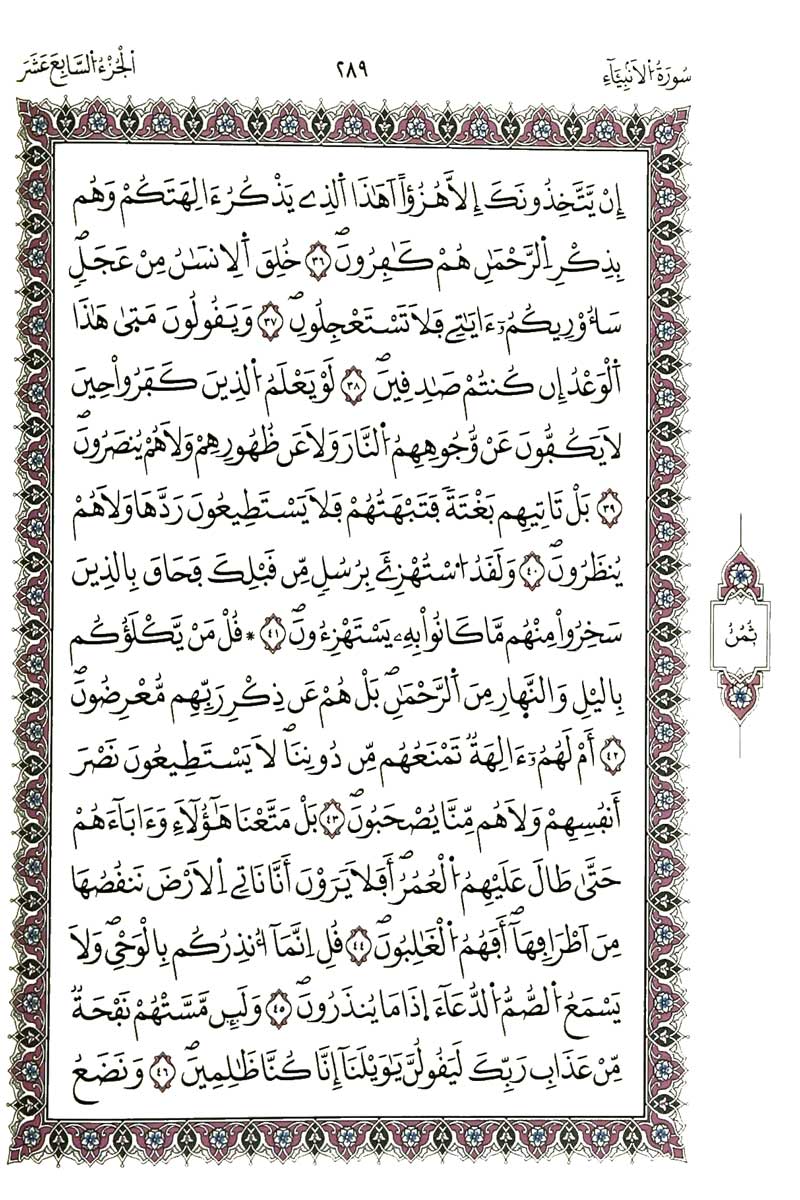 سُورَةُ الْأَنْبِيَآءِ
٢٨٩
اَلْجُزْءُ السَّابِعَ عَشَرَ
إِنْ يَّتَّخِذُونَكَ إِلَّا هُزُؤًا اَهَٰذَا اَلذِے يَذْكُرُ ءَالِهَتَكُمْ وَهُم
بِذِكْرِ اِ۬لرَّحْمَٰنِ هُمْ كَٰفِرُونَۖ ٣٦ خُلِقَ اَ۬لِانسَٰنُ مِنْ عَجَلٖۖ
سَأُوْرِيكُمُۥٓ ءَايَٰتِے فَلَا تَسْتَعْجِلُونِۖ ٣٧ وَيَقُولُونَ مَتَىٰ هَٰذَا
اَ۬لْوَعْدُ إِن كُنتُمْ صَٰدِقِينَۖ ٣٨ لَوْ يَعْلَمُ اُ۬لذِينَ كَفَرُواْ حِينَ
لَا يَكُفُّونَ عَنْ وُّجُوهِهِمُ اُ۬لنَّارَ وَلَا عَن ظُهُورِهِمْ وَلَا هُمْ يُنصَرُونَۖ
٣٩ بَلْ تَاتِيهِم بَغْتَةٗ فَتَبْهَتُهُمْ فَلَا يَسْتَطِيعُونَ رَدَّهَا وَلَا هُمْ
يُنظَرُونَۖ ٤٠ وَلَقَدُ اُ۟سْتُهْزِئَ بِرُسُلٖ مِّن قَبْلِكَ فَحَاقَ بِالذِينَ
سَخِرُواْ مِنْهُم مَّا كَانُواْ بِهِۦ يَسْتَهْزِءُونَۖ ٤١ * قُلْ مَنْ يَّكْلَؤُكُم
بِاليْلِ وَالنَّهارِ مِنَ اَ۬لرَّحْمَٰنِۖ بَلْ هُمْ عَن ذِكْرِ رَبِّهِم مُّعْرِضُونَۖ
٤٢ أَمْ لَهُمُۥٓ ءَالِهَةٞ تَمْنَعُهُم مِّن دُونِنَاۖ لَا يَسْتَطِيعُونَ نَصْرَ
أَنفُسِهِمْ وَلَا هُم مِّنَّا يُصْحَبُونَۖ ٤٣ بَلْ مَتَّعْنَا هَٰٓؤُلَآءِ وَءَابَآءَهُمْ
حَتَّىٰ طَالَ عَلَيْهِمُ اُ۬لْعُمُرُۖ أَفَلَا يَرَوْنَ أَنَّا نَاتِے اِ۬لَارْضَ نَنقُصُهَا
مِنَ اَطْرَافِهَآۖ أَفَهُمُ اُ۬لْغَٰلِبُونَۖ ٤٤ قُلِ اِنَّمَآ أُنذِرُكُم بِالْوَحْيِۖ وَلَا
يَسْمَعُ اُ۬لصُّمُّ اُ۬لدُّعَآءَ اِ۪ذَا مَا يُنذَرُونَۖ ٤٥ وَلَئِن مَّسَّتْهُمْ نَفْحَةٞ
مِّنْ عَذَابِ رَبِّكَ لَيَقُولُنَّ يَٰوَيْلَنَآ إِنَّا كُنَّا ظَٰلِمِينَۖ ٤٦ وَنَضَعُ
ثُمُنُ